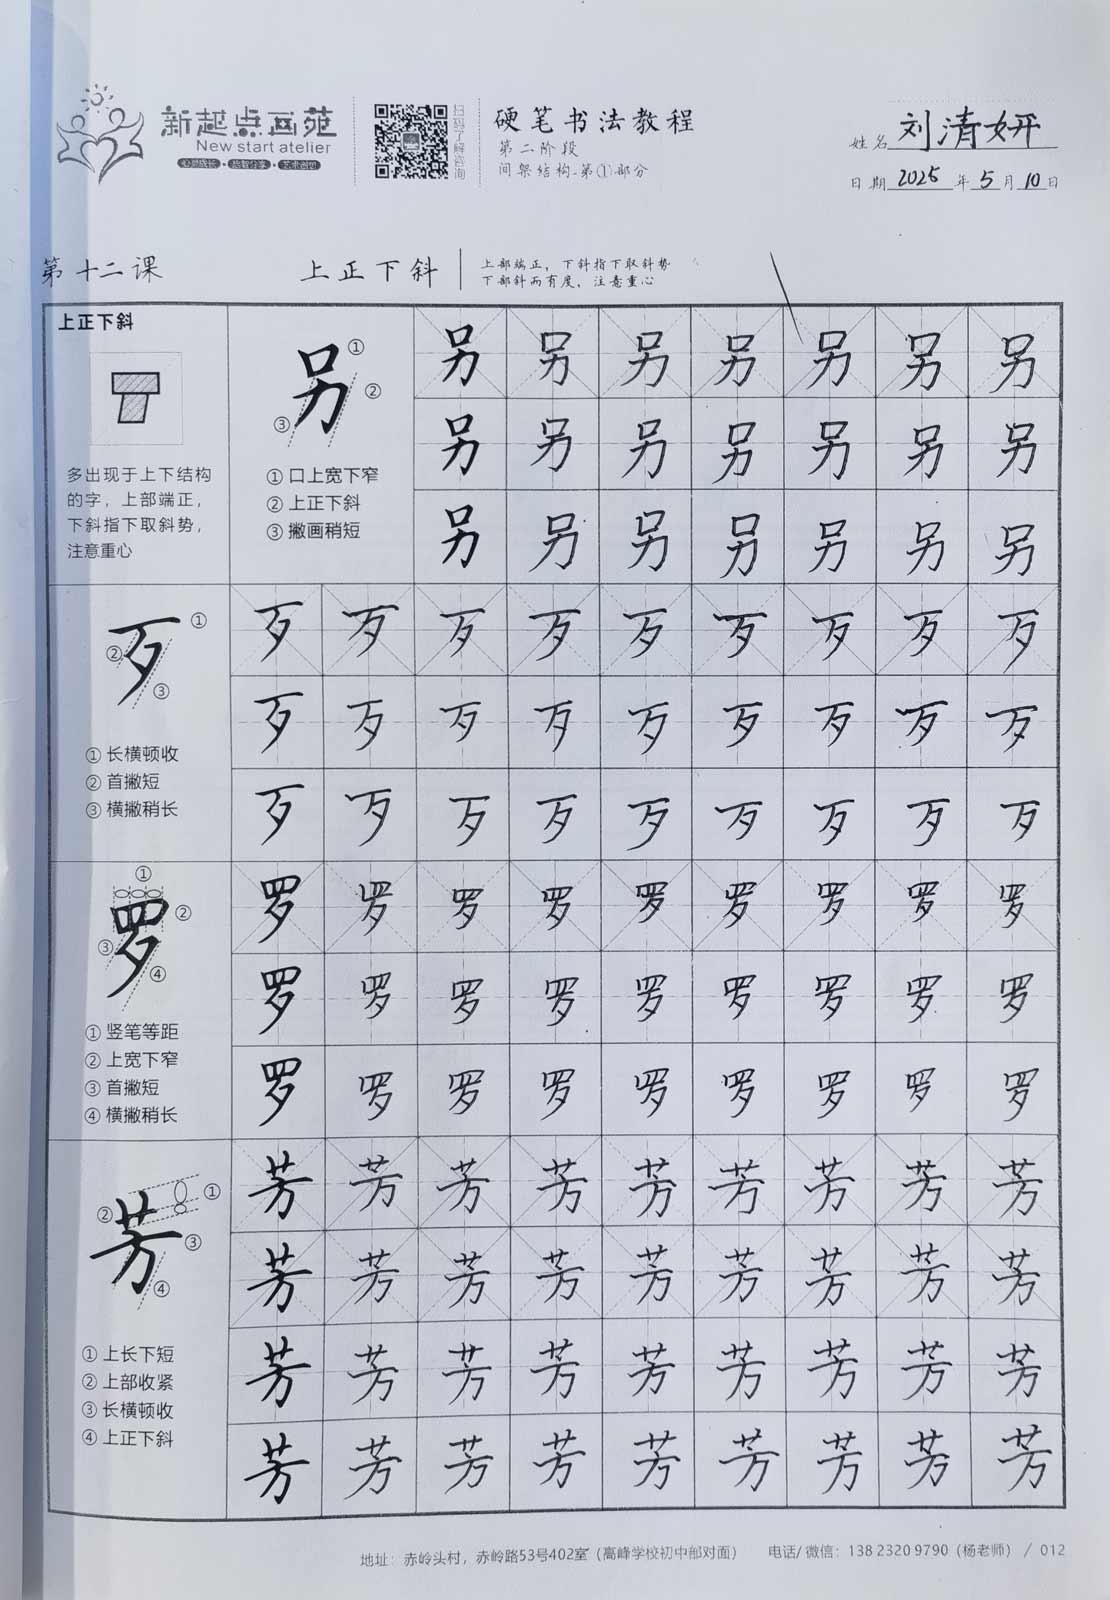 新起点画苑
New start atelier
心灵成长·
·艺术造型
扫码了解咨询
硬笔书法教程
第二阶段
间架结构-第①部分
姓名 刘清妍
日期 2025 年 5 月 10 日
第十二课
上正下斜
上部端正，下斜指下取斜势
下部斜而有度，注意重心
上正下斜
多出现于上下结构
的字，上部端正，
下斜指下取斜势，
注意重心
另 ① ② ③
① 口上宽下窄
② 上正下斜
③ 撇画稍短
另 另 另 另 另 另 另
另 另 另 另 另 另 另
另 另 另 另 另 另 另
歹 ① ② ③
① 长横顿收
② 首撇短
③ 横撇稍长
歹 歹 歹 歹 歹 歹 歹 歹 歹
歹 歹 歹 歹 歹 歹 歹 歹 歹
歹 歹 歹 歹 歹 歹 歹 歹 歹
罗 ① ② ③ ④
① 竖笔等距
② 上宽下窄
③ 首撇短
④ 横撇稍长
罗 罗 罗 罗 罗 罗 罗 罗 罗
罗 罗 罗 罗 罗 罗 罗 罗 罗
罗 罗 罗 罗 罗 罗 罗 罗 罗
芳 ① ② ③ ④
① 上长下短
② 上部收紧
③ 长横顿收
④ 上正下斜
芳 芳 芳 芳 芳 芳 芳 芳 芳
芳 芳 芳 芳 芳 芳 芳 芳 芳
芳 芳 芳 芳 芳 芳 芳 芳 芳
芳 芳 芳 芳 芳 芳 芳 芳 芳
地址：赤岭头村，赤岭路53号402室（高峰学校初中部对面） 电话/微信：138 2320 9790（杨老师） / 012